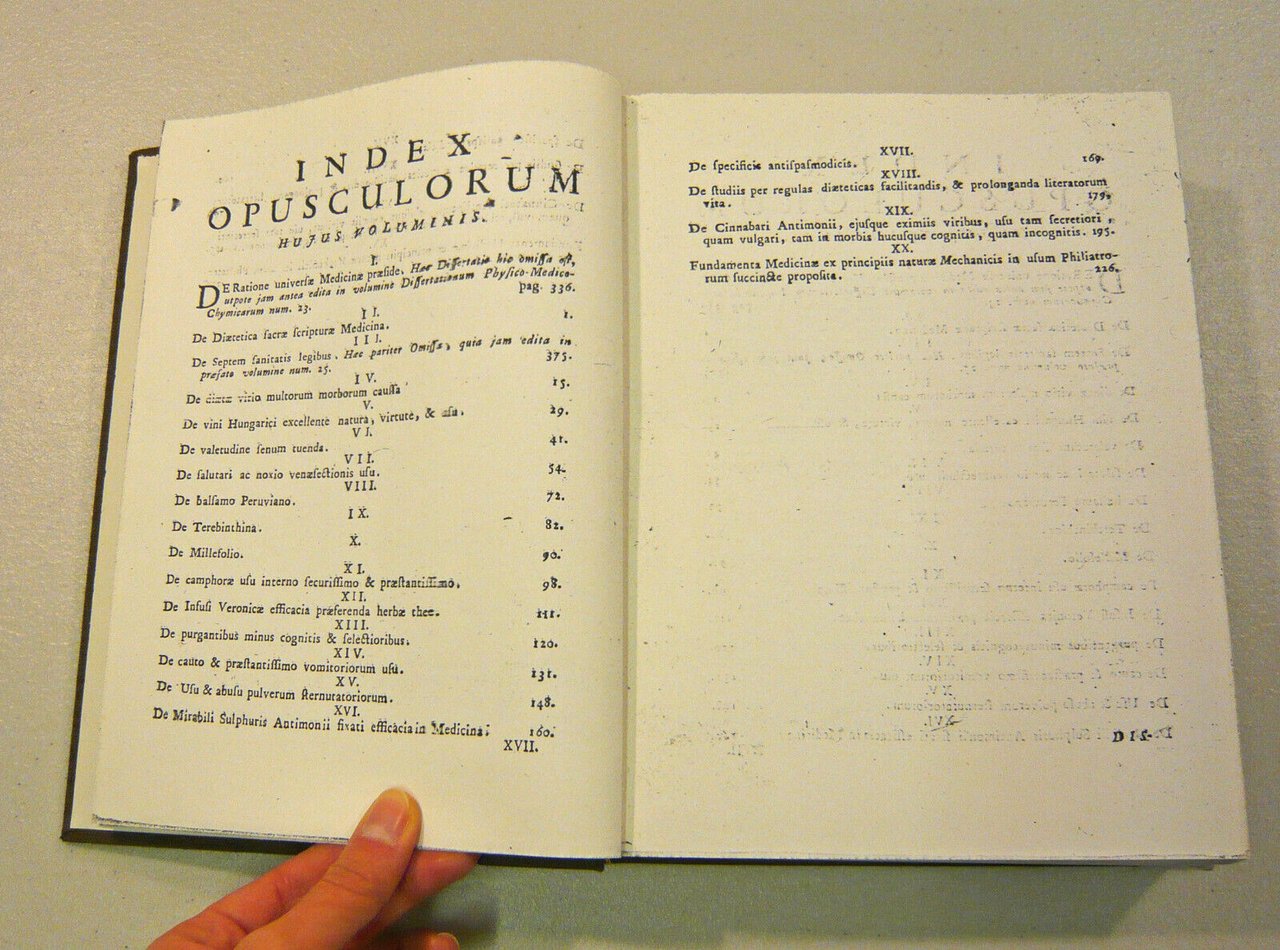 INDEX
OPUSCULORUM
HUJUS VOLUMINIS.
I.
DE Ratione universæ Medicinæ præside. Hæc Dissertatio hic omissa est,
utpote jam antea edita in volumine Dissertationum Physico-Medico-
Chymicarum num. 23. pag. 336.
II.
De Diætetica sacræ scripturæ Medicina. 1.
III.
De Septem sanitatis legibus. Hæc pariter Omissa, quia jam edita in
præfato volumine num. 25. 375.
IV.
De diætæ vitio multorum morborum caussa 15.
V.
De vini Hungarici excellente natura, virtute, & usu. 29.
VI.
De valetudine senum tuenda. 41.
VII.
De salutari ac noxio venæsectionis usu. 54.
VIII.
De balsamo Peruviano. 72.
IX.
De Terebinthina. 82.
X.
De Millefolio. 90.
XI.
De camphoræ usu interno securissimo & præstantissimo. 98.
XII.
De Infusi Veronicæ efficacia præferenda herbæ thee. 111.
XIII.
De purgantibus minus cognitis & selectioribus. 120.
XIV.
De cauto & præstantissimo vomitoriorum usu. 131.
XV.
De Usu & abusu pulverum sternutatoriorum. 148.
XVI.
De Mirabili Sulphuris Antimonii fixati efficacia in Medicina. 160.
XVII.
XVII.
De specificis antispasmodicis. 169.
XVIII.
De studiis per regulas diæteticas facilitandis, & prolonganda literatorum
vita. 179.
XIX.
De Cinnabari Antimonii, ejusque eximiis viribus, usu tam secretiori,
quam vulgari, tam in morbis hucusque cognitis, quam incognitis. 195.
XX.
Fundamenta Medicinæ ex principiis naturæ Mechanicis in usum Philiatro-
rum succincte proposita. 226.